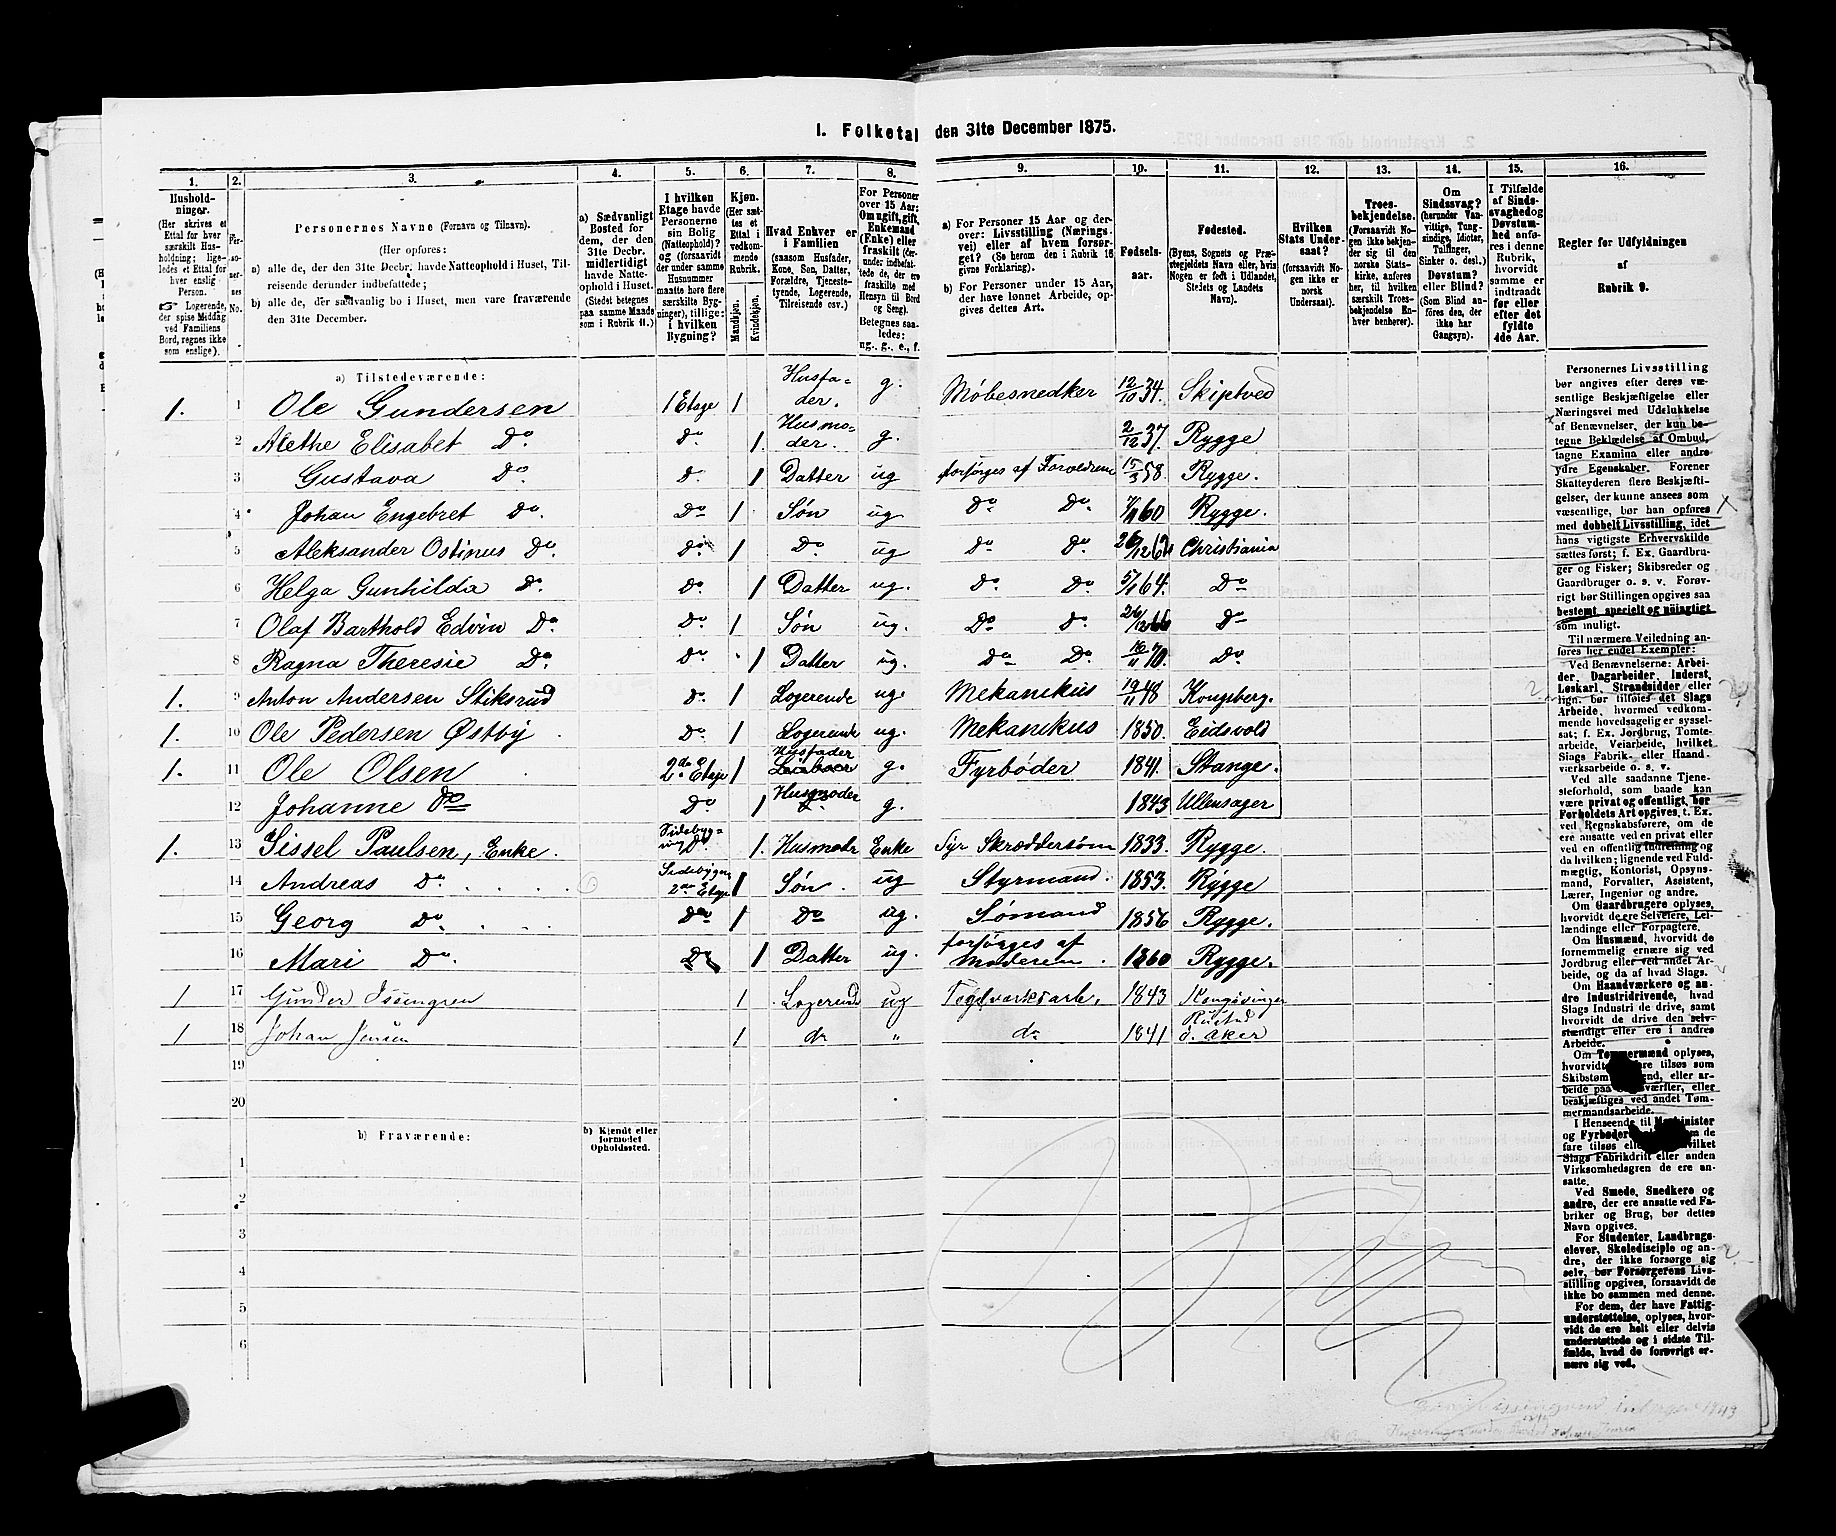 I. Folketal den 31te December 1875.
1. 2. 3. 4. 5. 6. 7. 8. 9. 10. 11. 12. 13. 14. 15. 16.
Husholdninger.
(Her skrives et
Ettal for hver
særskilt Husholdning; ligeledes et Ettal for
hver enslig
Person.
☞ Logerende,
der spise Middag
ved Familiens
Bord, regnes ikke
som enslige).
Personernes No.
Personernes Navne (Fornavn og Tilnavn).
(Her opføres:
a) alle de, der den 31te Decbr. havde Natteophold i Huset, Tilreisende derunder indbefattede;
b) alle de, der sædvanlig bo i Huset, men vare fraværende
den 31te December.
a) Sædvanligt
Bosted for
dem, der den
31te Decbr.
midlertidigt
havde Natteophold i Huset.
(Stedet betegnes
paa samme Maade
som i Rubrik 11.)
I hvilken
Etage havde
Personerne
sin Bolig
(Natteophold)?
og (forsaavidt
der under samme
Husnummer
maatte høre flere
særskilte Bygninger), tillige:
i hvilken
Bygning?
Kjøn.
(Her sættes et
Ettal i
vedkommende
Rubrik.
Mandkjøn. Kvindekjøn.
Hvad Enhver er
i Familien
(saasom Husfader,
Kone, Søn, Datter,
Forældre, Tjenestetyende, Logerende,
Tilreisende osv.)
For Personer
over 15 Aar:
Om ugift, gift,
Enkemand
(Enke) eller
fraskilt (derunder indbefattede de, der ere
fraskilte med
Hensyn til Bord
og Seng).
Betegnes saaledes:
ug., g., e., f.
a) For Personer 15 Aar og derover: Livsstilling (Næringsvei) eller af hvem forsørget? (Se herom den i Rubrik 16
givne Forklaring).
b) For Personer under 15 Aar,
der have lønnet Arbeide, opgives dettes Art.
Fødselsaar.
Fødested.
(Byens, Sognets og Præstegjeldets Navn eller, hvis
Nogen er født i Udlandet,
Stedets og Landets
Navn).
Hvilken
Stats Undersaat?
(forsaavidt Nogen ikke er
norsk
Undersaat).
Troesbekjendelse.
(Forsaavidt Nogen ikke bekjender sig til den
norske Statskirke, anføres
her, til hvilken
særskilt Troesbekjendelse Enhver henhører).
Om
Sindssvag?
(herunder Vanvittige, Tungsindige, Idioter,
Tullinger,
Sinker o. desl.)
Døvstum?
eller Blind?
(Som Blind anføres den, der
ikke har
Gangsyn).
I Tilfælde
af Sindssvaghed og
Døvstumhed anføres i denne
Rubrik,
hvorvidt
samme er
indtraadt
før eller
efter det
fyldte
4de Aar.
Regler for Udfyldningen
af
Rubrik 9.
a) Tilstedeværende:
1. 1 Ole Gundersen 1 Etage 1 Husfader. g. Møbesnedker 12/10 34. Skiptved
2 Alethe Elisabet Do. Do. 1. Husmoder. g. 2/12 37. Rygge
3 Gustava Do. Do. 1 Datter ug forsörges af Forældrene 15/3 58. Rygge.
4 Johan Engebret Do. Do 1 Søn ug Do Do. 60 Rygge.
5 Aleksander Ostinus Do. Do. 1 Do. ug Do Do. Christiania
6 Helga Gunhilda Do. Do. 1 Datter ug. Do Do. 64. Do
7 Olaf Barthold Edvin Do. Do. 1 Søn ug. Do Do. Do
8 Ragna Theresie Do. Do. 1 Datter ug. Do Do. 16/11 70. Do
1. 9 Anton Andersen Stiksrud Do. 1 Logerende ug. Mekanikus 19/11 48 Kongsberg.
1. 10 Ole Pedersen Østby Do. 1 Logerende ug. Mekanikus 1850. Eidsvold
1. 11 Ole Olsen 2den Etage 1 Husfader g. Fyrbøder 1841. Stange.
12 Johanne Do Do 1 Husmoder g. 1843 Ullensager
1. 13 Sissel Paulsen, Enke. Sidebygning Do. 1. Husmodr Enke Syr Skræddersøm 1833. Rygge.
14 Andreas Do. Sidebygn. 2den Etage 1 Søn. ug Styrmand. 1853. Rygge
15 Georg Do. Do 1 Do ug. Sømand 1856 Rygge.
16 Mari Do. Do 1 Datter ug. forsörges af Moderen. 1860 Rygge.
1 17 Gunder Issengren 1 Logerende ug Teglværksarb. 1843 Kongsvinger
1 18 Johan Jensen 1 do " do 1841 Ø. Aker
19
20
b) Fraværende:
b) Kjendt eller
formodet
Opholdssted.
1
2
3
4
5
6
Personernes Livsstilling
bør angives efter deres væsentlige Beskjæftigelse eller
Næringsvei med Udelukkelse
af Benævnelser, der kun betegne Beklædelse af Ombud,
tagne Examina eller andre
ydre Egenskaber. Forener
Skatteyderen flere Beskjæftigelser, der kunne ansees som
væsentlige, bør han opføres
med dobbelt Livsstilling, idet
hans vigtigste Erhvervskilde
sættes først; f. Ex. Gaardbruger og Fisker; Skibsreder og
Gaardbruger o. s. v. Forøvrigt bør Stillingen opgives saa
bestemt, specielt og nøiagtigt
som muligt.
Til nærmere Veiledning anføres her endel Exempler:
Ved Benævnelserne: Arbeider, Dagarbeider, Inderst,
Løskarl, Strandsidder eller
lign. bør tilføies det Slags
Arbeide, hvormed vedkommende hovedsagelig er sysselsat; f. Ex. Jordbrug, Tomtearbeide, Veiarbeide, hvilket
Slags Fabrik- eller Haandværksarbeide o. s. v.
Ved alle saadanne Tjenesteforhold, som baade kan
være privat og offentligt, bør
Forholdets Art opgives, t. Ex.
ved Regnskabsførere, om de
ere ansatte ved en privat eller
ved en offentlig Indretning og
da hvilken; lignende ved Fuldmægtig, Kontorist, Opsynsmand, Forvalter, Assistent,
Lærer, Ingeniør og andre.
Om Gaardbrugere oplyses,
hvorvidt de ere Selveiere, Leilændinge eller Forpagtere.
Om Husmænd, hvorvidt de
fornemmelig ernære sig ved
Jordbrug eller ved andet Arbeide, og da af hvad Slags.
Om Haandværkere og andre Industridrivende, hvad
Slags Industri de drive, samt
hvorvidt de drive den selvstændigt eller ere i andres
Arbeide.
Om Tømmermænd oplyses,
hvorvidt de fare tilsøs som
Skibstømmermænd, eller arbeide paa Skibsværfter, eller
beskjæftiges ved andet Tømmermandsarbeide.
I Henseende til Maskinister
og Fyrbødere, om de
fare tilsøs eller ved hvilket
Slags Fabrikdrift eller anden
Virksomhedsgren de ere ansatte.
Ved Smede, Snedkere og
andre, der ere ansatte ved Fabriker og Brug, bør dettes
Navn opgives.
For Studenter, Landbrugselever, Skoledisciple og andre, der ikke forsørge sig
selv, bør Forsørgerens Livsstilling opgives, forsaavidt de
ikke bo sammen med denne.
For dem, der have Fattigunderstøttelse, oplyses, hvorvidt de ere helt eller delvis
understøttede og i sidste Tilfælde, hvad de forøvrigt ernære sig ved.